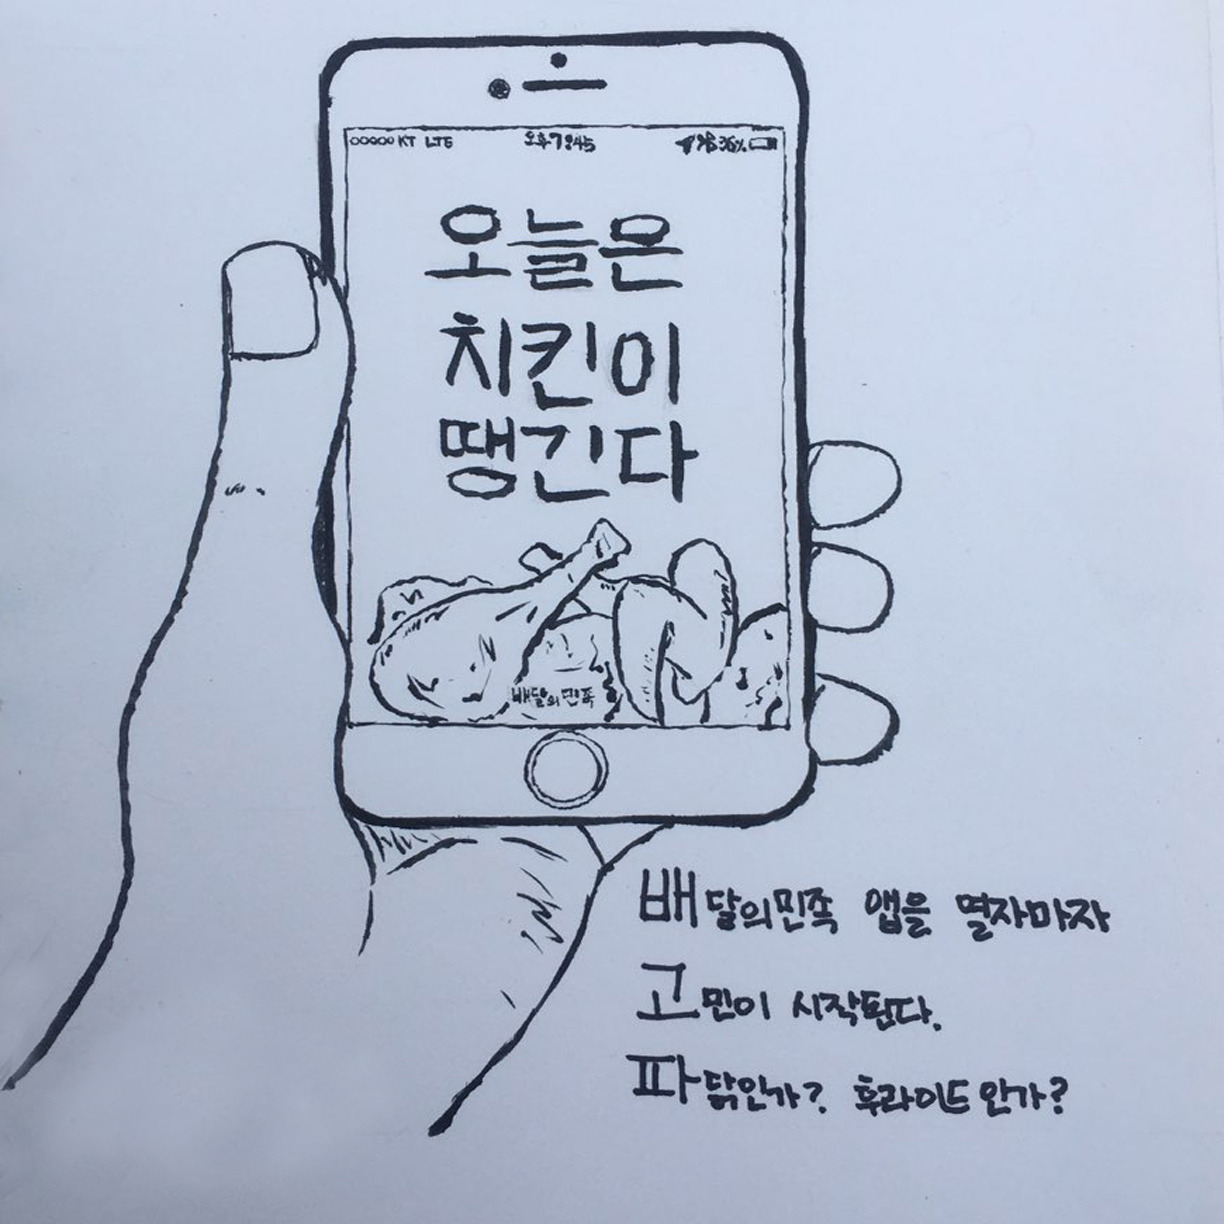 ooooo KT LTE 오후 7:45 36%
오늘은
치킨이
땡긴다
배달의민족
배달의민족 앱을 열자마자
고민이 시작된다.
파닭인가? 후라이드인가?